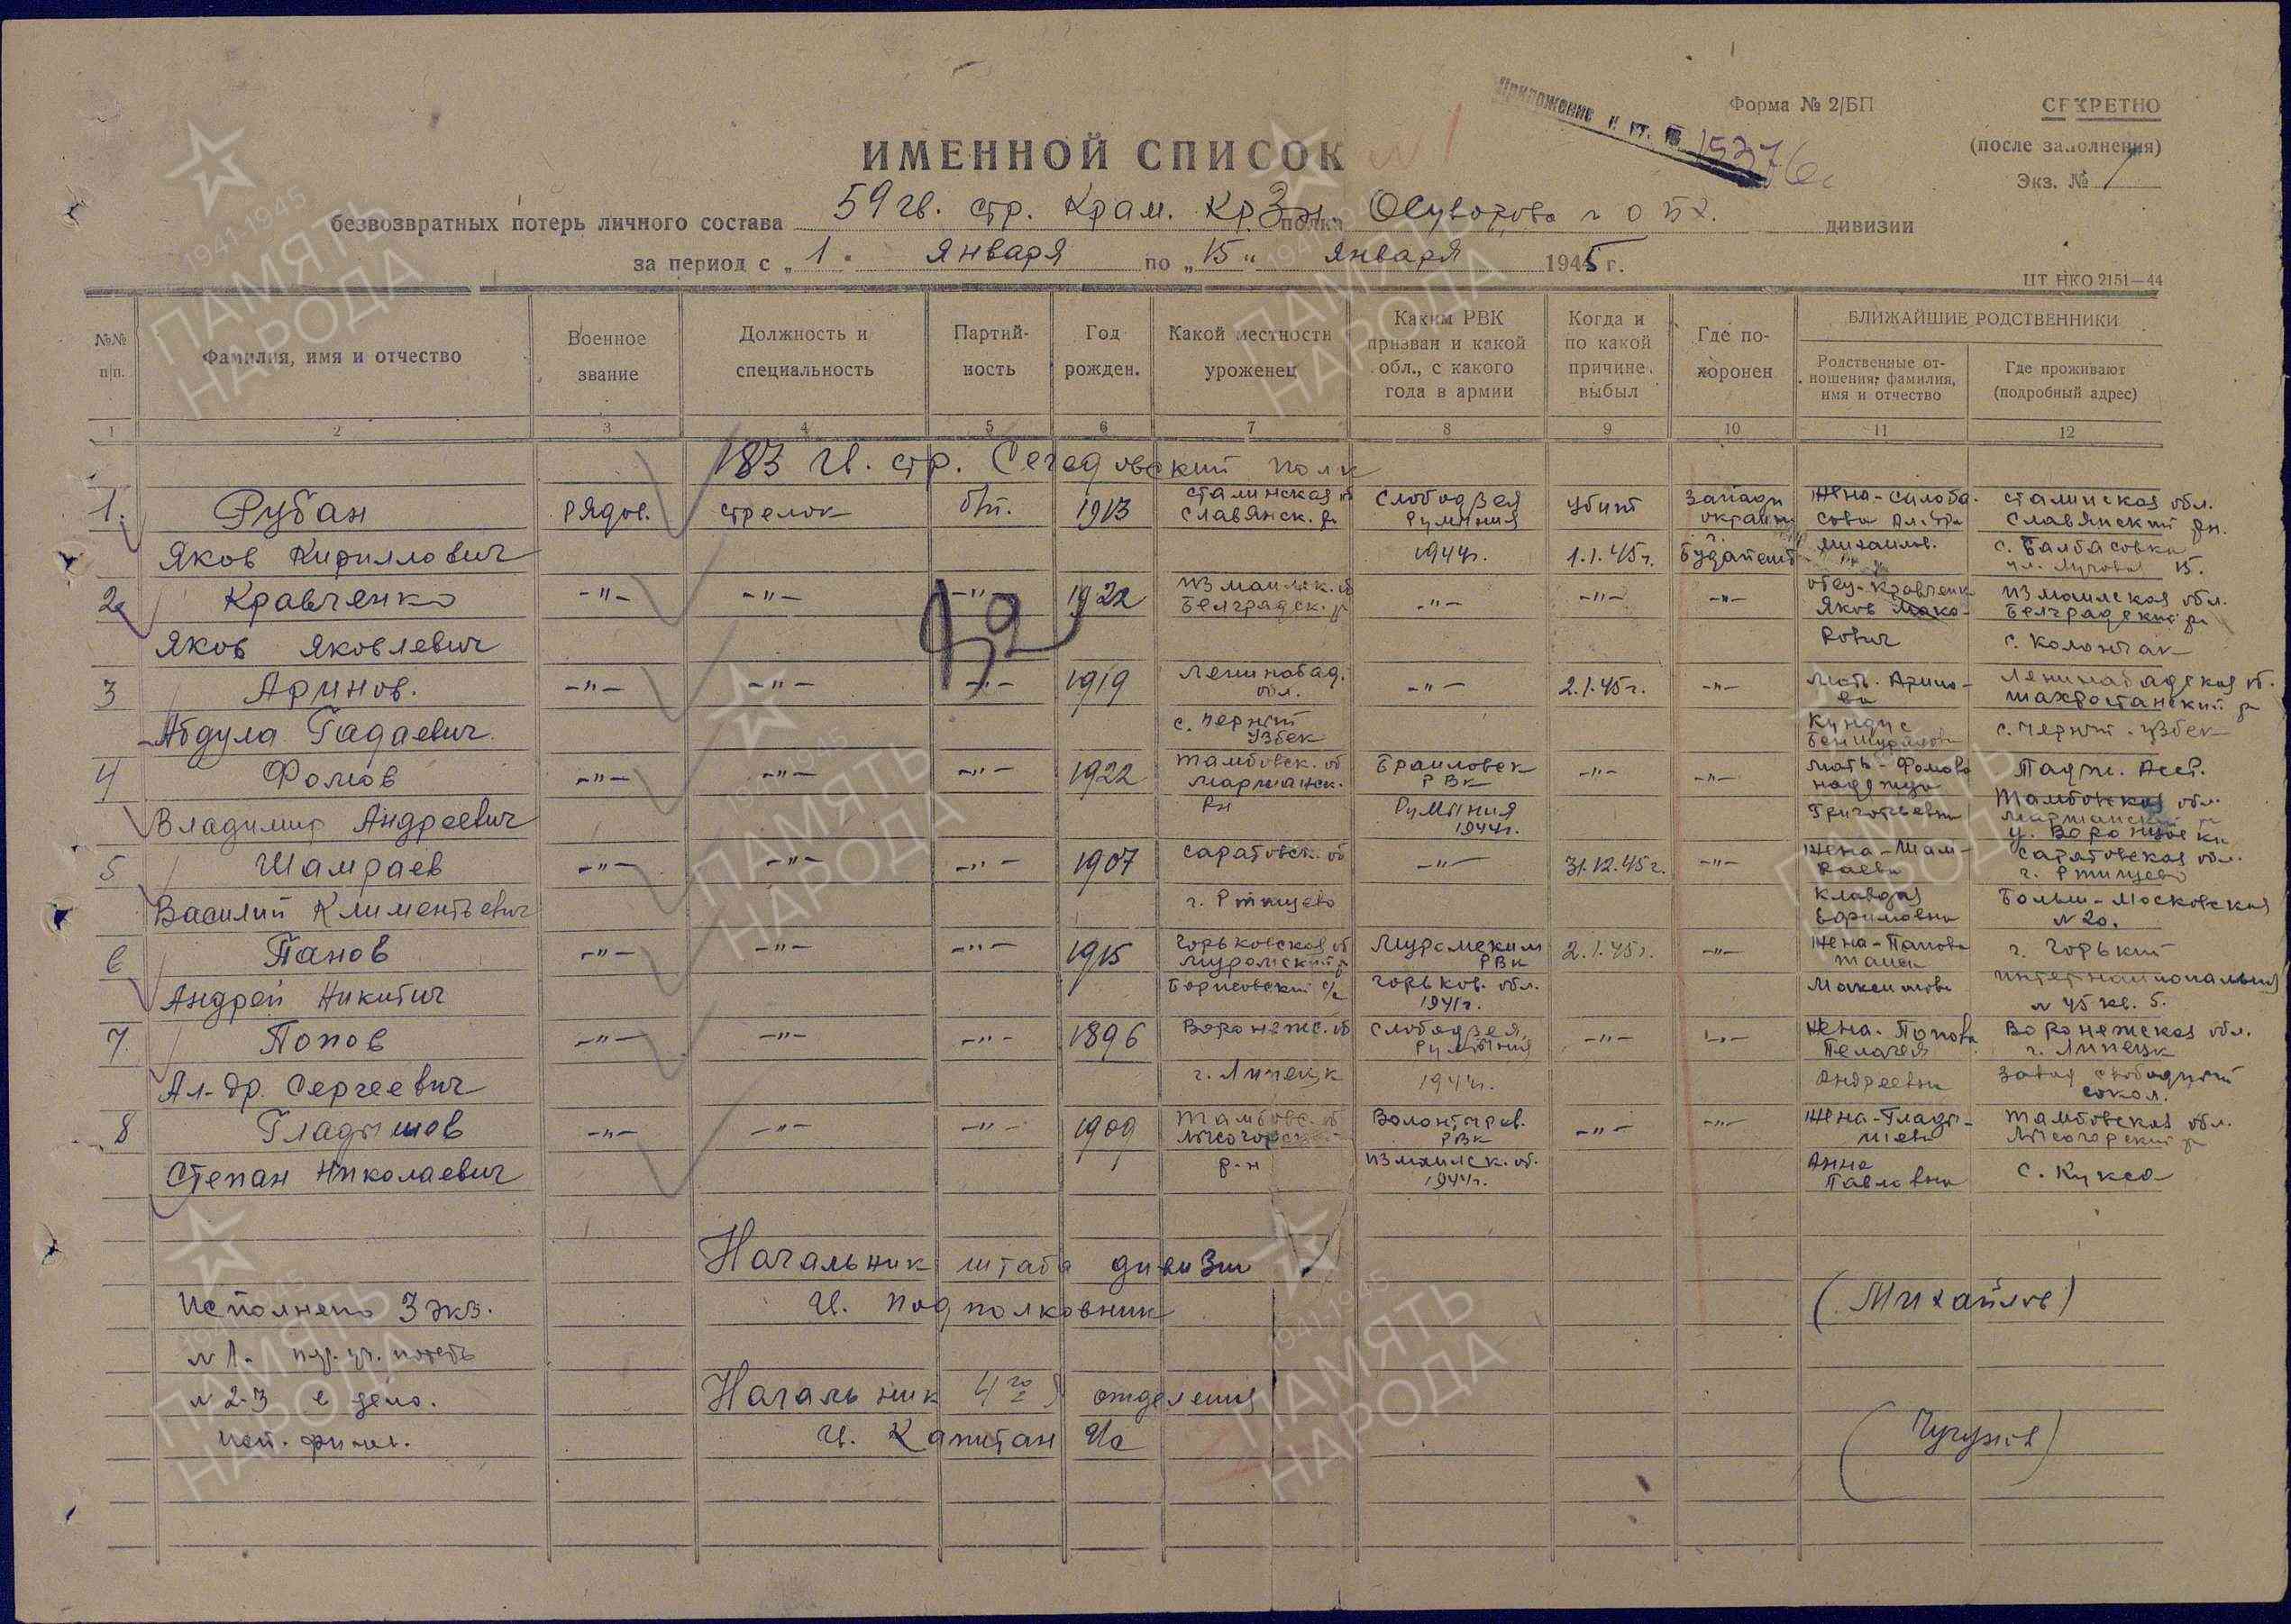 Приложение к вх. № 1537бс
Форма № 2/БП
СЕКРЕТНО
(после заполнения)
Экз. № 1
ИМЕННОЙ СПИСОК № 1
безвозвратных потерь личного состава 59 гв. стр. Крам. Кр. Зн. полка О. Суворова и О БХ. дивизии
за период с „1" января по „15" января 1945 г.
ЦТ НКО 2151—44
№№ п/п. Фамилия, имя и отчество Военное звание Должность и специальность Партийность Год рожден. Какой местности уроженец Каким РВК призван и какой обл., с какого года в армии Когда и по какой причине выбыл Где похоронен БЛИЖАЙШИЕ РОДСТВЕННИКИ
Родственные отношения, фамилия, имя и отчество Где проживают (подробный адрес)
1 2 3 4 5 6 7 8 9 10 11 12
183 гв. стр. Сегедовский полк
1. Рубан рядов. стрелок б/п. 1913 Сталинская об Славянск. р Слободзея Румыния убит Западн окраин Жена - Сталинская обл. Славянский рн.
Яков Кириллович 1944г. 1.1.45г. г. Будапешт Михайлов. с. Балбасовка 15.
2. Кравченко -"- -"- -"- 1922 Измаильск. об Белградск. р -"- -"- -"- отец - Кравченк Яков Мако- Измаилская обл. Белградский р
Яков Яковлевич рович с.
3 Аринов. -"- -"- -"- 1919 Ленинабад. обл. -"- 2.1.45г. -"- Мать. Арино- ва Ленинабадская об.
Абдула Гадаевич. с. Узбек Кундус с. Узбек
4 Фомов -"- -"- -"- 1922 Тамбовск. об Маршанск. Браиловск РВК -"- -"- Мать - Фомова Надежда Тадж. АССР.
Владимир Андреевич Рн Румыния 1944г. Григорьевна Тамбовская обл. Маршанский р
5 Шамраев -"- -"- -"- 1907 Саратовск. об -"- 31.12.45г. -"- Жена - Шам- раева Саратовская обл. г. Ртищево
Василий Климентьевич г. Ртищево Клавдия Ефимовна Больш - Московская № 20.
6 Панов -"- -"- -"- 1915 Горьковская об Муромский р Муромским РВК 2.1.45г. -"- Жена - Панова г. Горький
Андрей Никитич Борисовский с/с Горьков. обл. 1941г. Максимовн Интернациональная № 45 кв. 5.
7 Попов -"- -"- -"- 1896 Воронежс. об Слободзея Румыния -"- -"- Жена. Попова Пелагея Воронежская обл. г. Липецк
Ал-др. Сергеевич г. Липецк 1944г. Андреевна Завод Свободный сокол.
8 Гладышов -"- -"- -"- 1909 Тамбовс. об Лысогорский Волонтиров. РВК -"- -"- Жена - Глады- шева Тамбовская обл. Лысогорский р
Степан Николаевич р-н Измаилск. об. 1944г. Анна Павловна с. Кукса
Начальник штаба дивизии
Исполнено 3 экз. гв. подполковник (Михайлов)
№ 1-
№ 2-3 в дело. Начальник 4го отделения
гв. Капитан а/с (Чугунов)
1941-1945
ПАМЯТЬ
НАРОДА